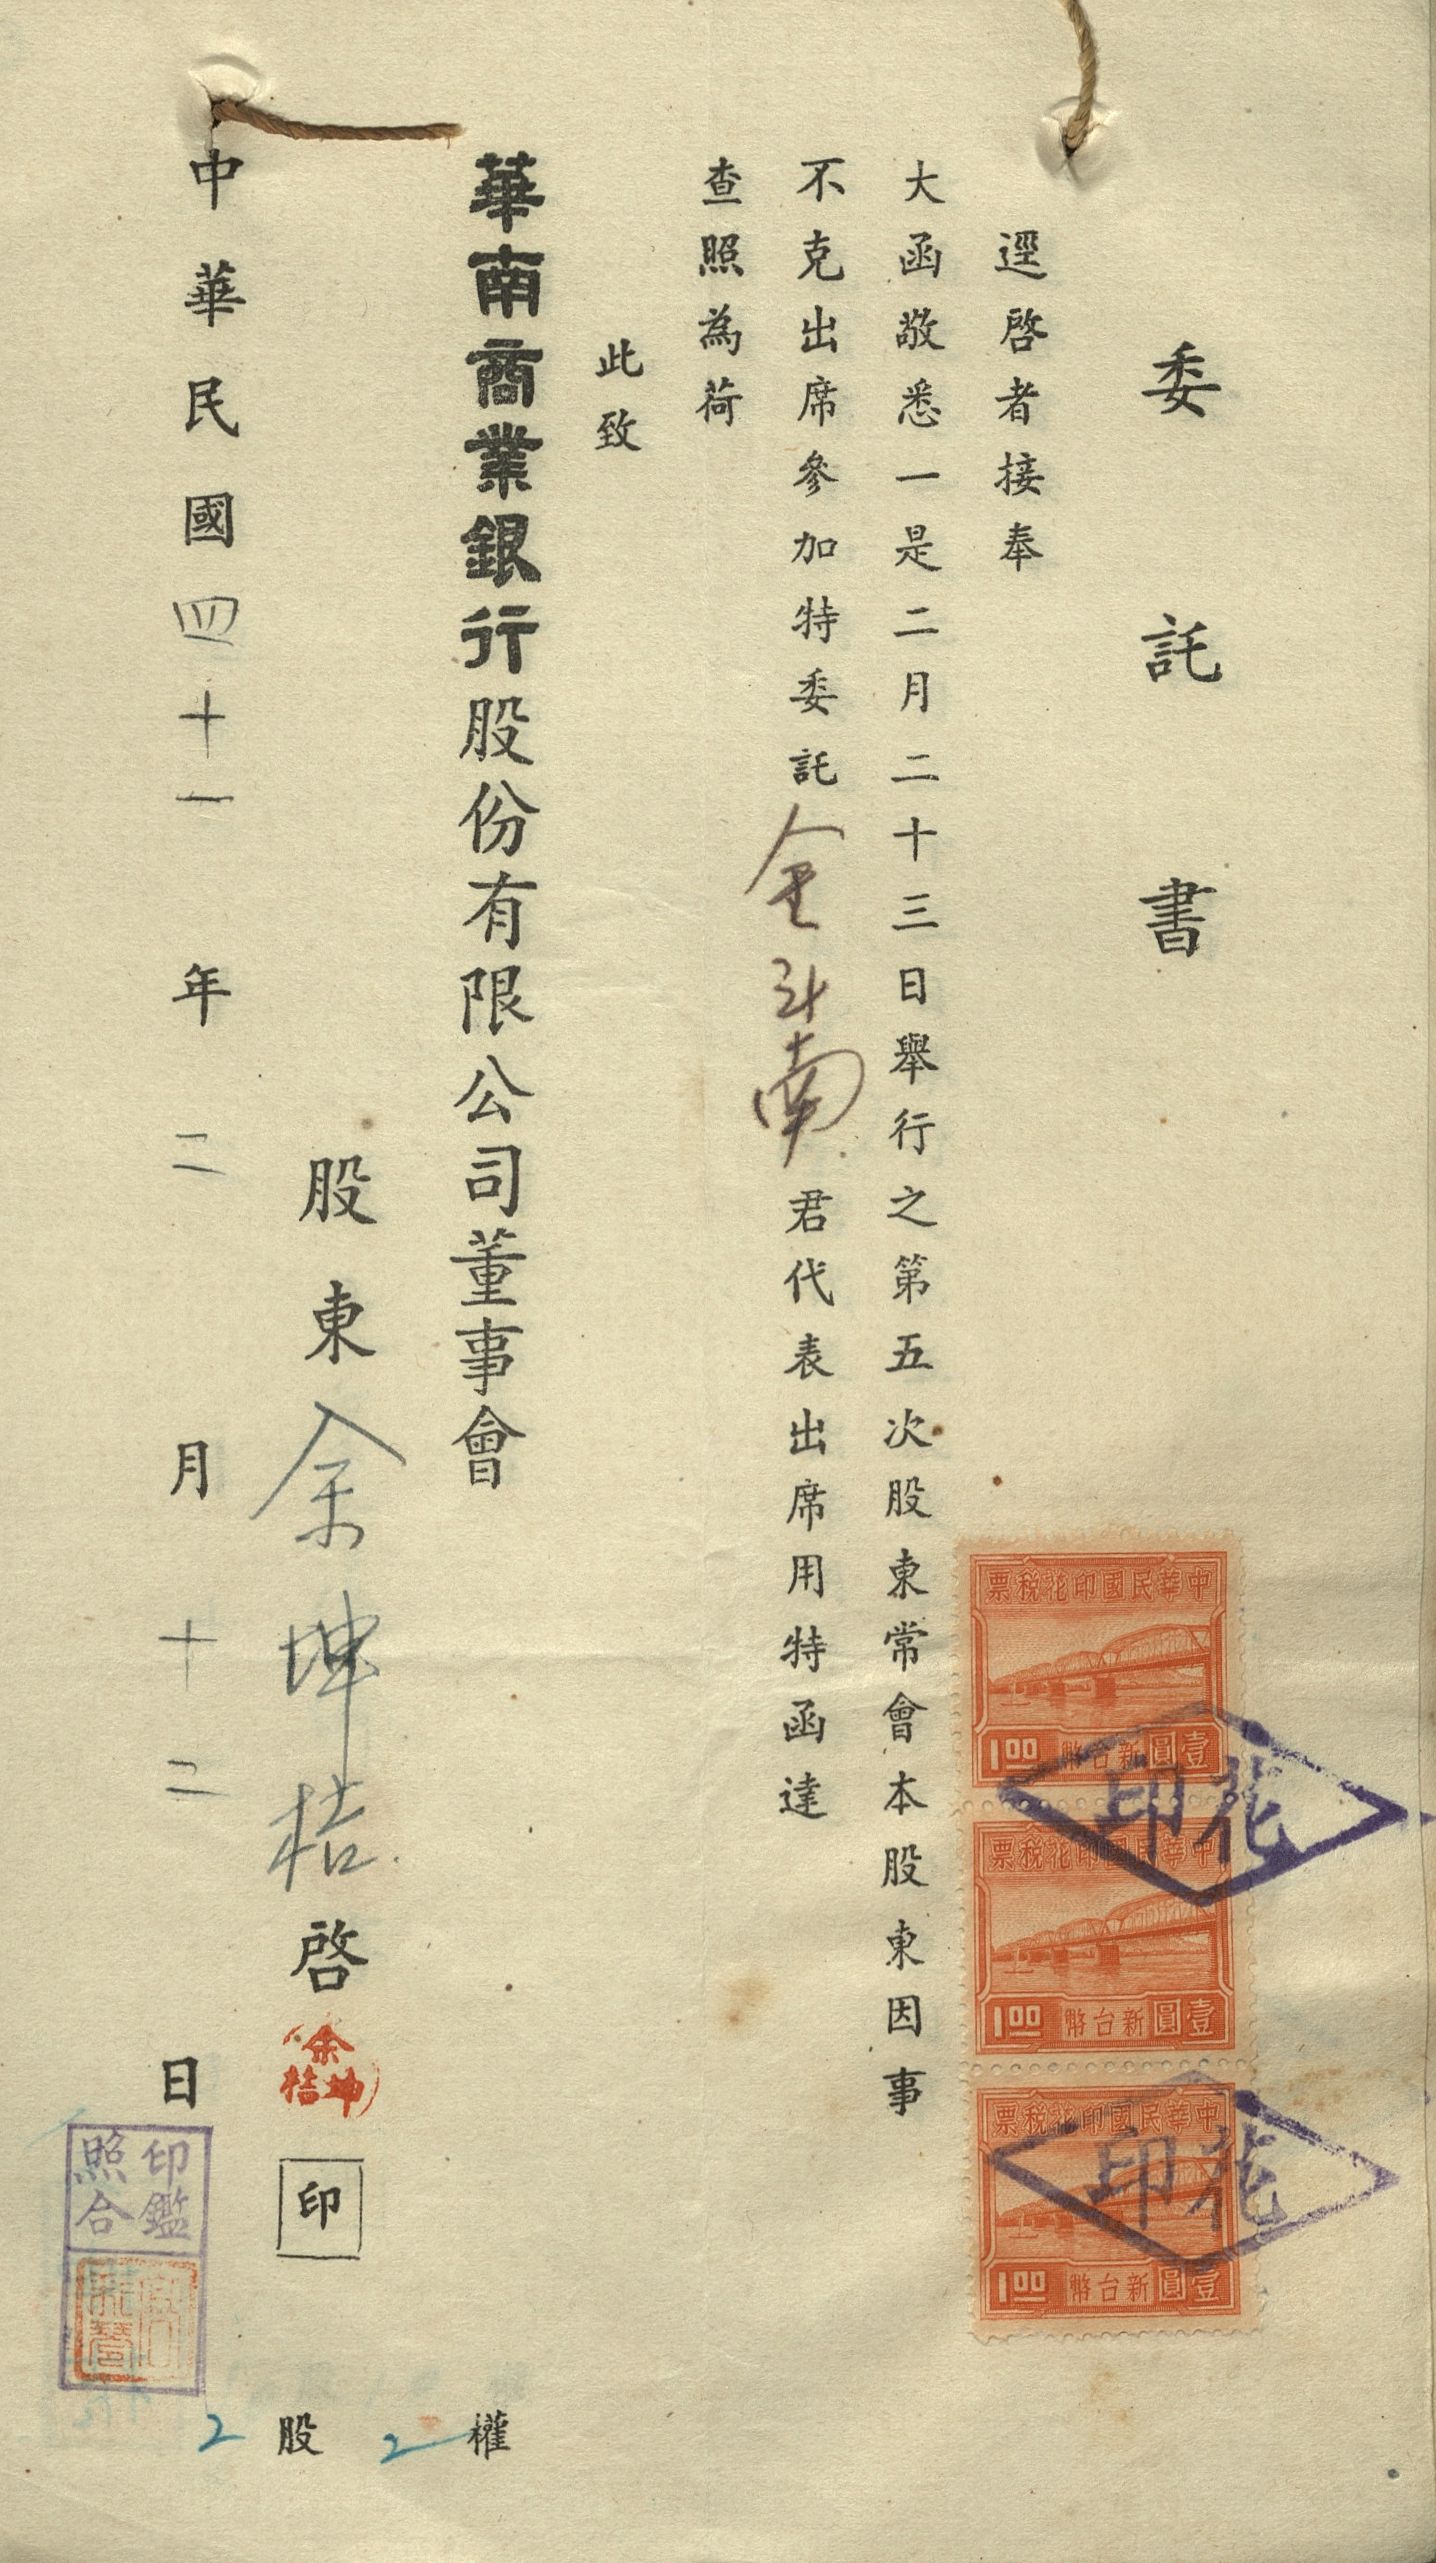 委託書
逕啓者接奉
大函敬悉一是二月二十三日舉行之第五次股東常會本股東因事
不克出席參加特委託 南君代表出席用特函達
查照為荷
此致
華南商業銀行股份有限公司董事會
股東余坤桔啓
余坤桔
印
中華民國四十一年二月十二日
權
2
股
2
印鑑
照合
中華民國印花稅票
1.00 新台幣壹圓
中華民國印花稅票
1.00 新台幣壹圓
中華民國印花稅票
1.00 新台幣壹圓
印花
印花